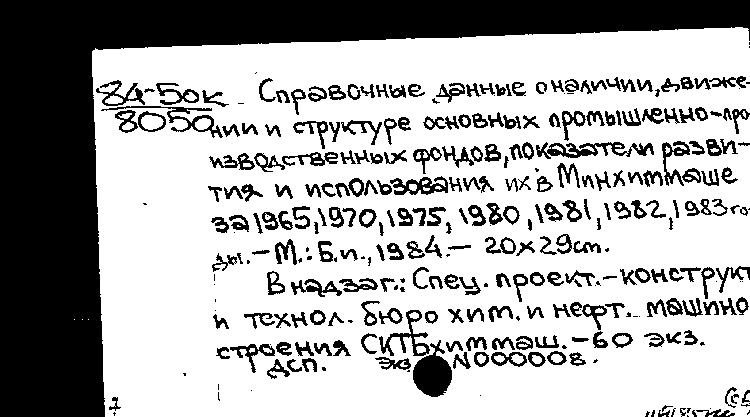 84-5ок
8050
Справочные данные о наличии, движе-
нии и структуре основных промышленно-про
изводственных фондов, показатели разви-
тия и использования их в Минхиммаше
за 1965, 1970, 1975, 1980, 1981, 1982, 1983 го-
ды. – М.: Б.и., 1984. – 20×29см.
В надзаг.: Спец. проект.-конструкт
и технол. бюро хим. и нефт. машино
строения СКТБхиммаш. – 60 экз.
ДСП. экз N000008.